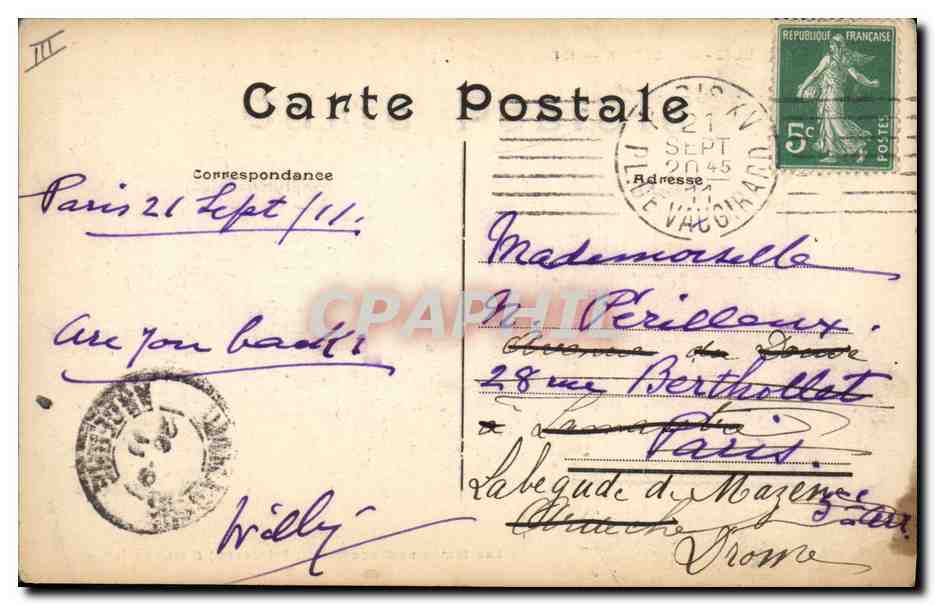 III
Carte Postale
RÉPUBLIQUE FRANÇAISE
5c
POSTES
PARIS XV
21
SEPT
20 45
11
PL. DE VAUGIRARD
Correspondance
Adresse
Paris 21 Sept/11.
are you back?
Willy
Mademoiselle
N. Périlloux.
Avenue du Doux
28 rue Berthollet
à Lamastre
Paris.
Labegude de Mazenc
Ardèche
Drome
CPAPHIL